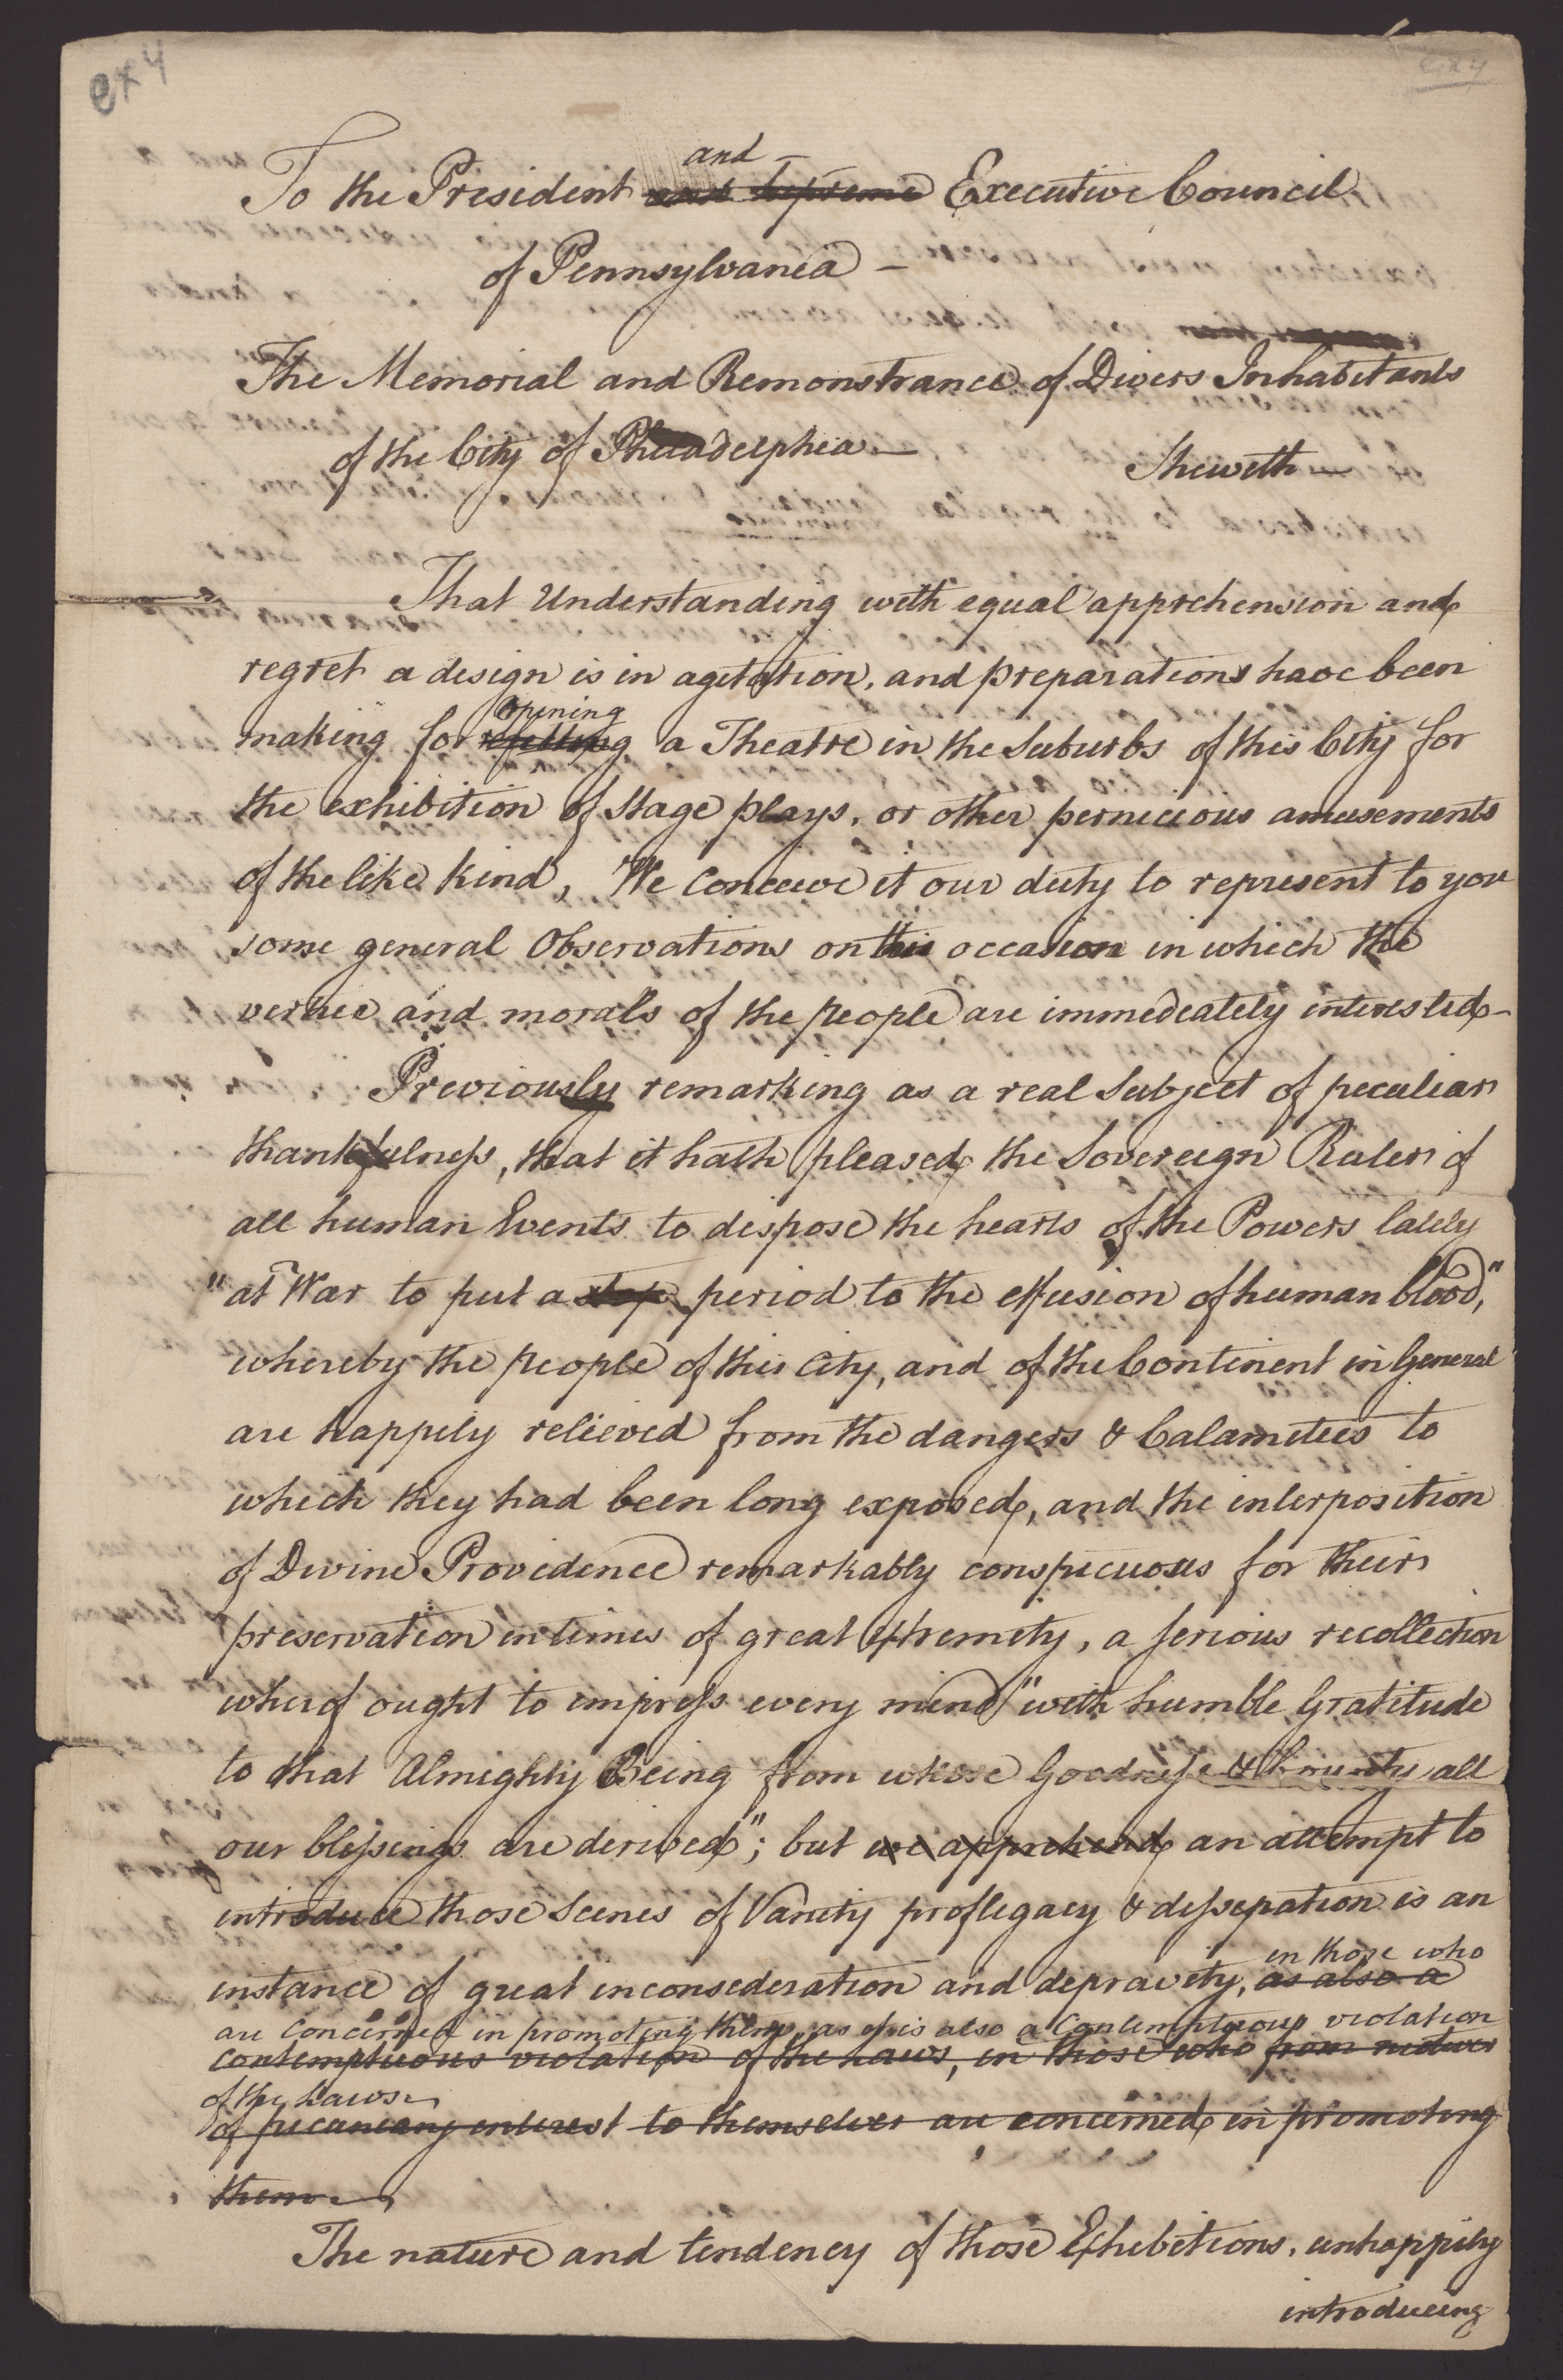 ex 4
ex 4
and
To the President and Supreme Executive Council
of Pennsylvania –
The Memorial and Remonstrance of Divers Inhabitants
of the City of Philadelphia – Sheweth –
That Understanding with equal apprehension and
regret a design is in agitation, and preparations have been
opening
making for refitting a Theatre in the Suburbs of this City for
the exhibition of Stage plays, or other pernicious amusements
of the like kind, We Conceive it our duty to represent to you
some general Observations on this occasion in which the
vertue and morals of the people are immediately interested –
Previously remarking as a real Subject of peculiar
thankfulness, that it hath pleased the Sovereign Ruler of
all human Events to dispose the hearts of the Powers lately
"at War to put a stop period to the effusion of human blood,"
whereby the people of this City, and of the Continent in General
are happily relieved from the dangers & Calamities to
which they had been long exposed, and the interposition
of Divine Providence remarkably conspicuous for their
preservation in times of great Extremity, a serious recollection
wherof ought to impress every mind "with humble Gratitude
to that Almighty Being from whose Goodness & Bounty all
our blessings are derived"; but we apprehend an attempt to
introduce those Scenes of Vanity proflegacy & dissepation is an
in those who
instance of great inconsederation and depravity, as also a
are Concerned in promoting them, as it is also a Contemptuous violation
contemptuous violation of the Laws, in those who from motives
of the Laws –
of pecuniary interest to themselves are concerned in promoting
them –
The nature and tendency of those Exhibitions, unhappily
introducing